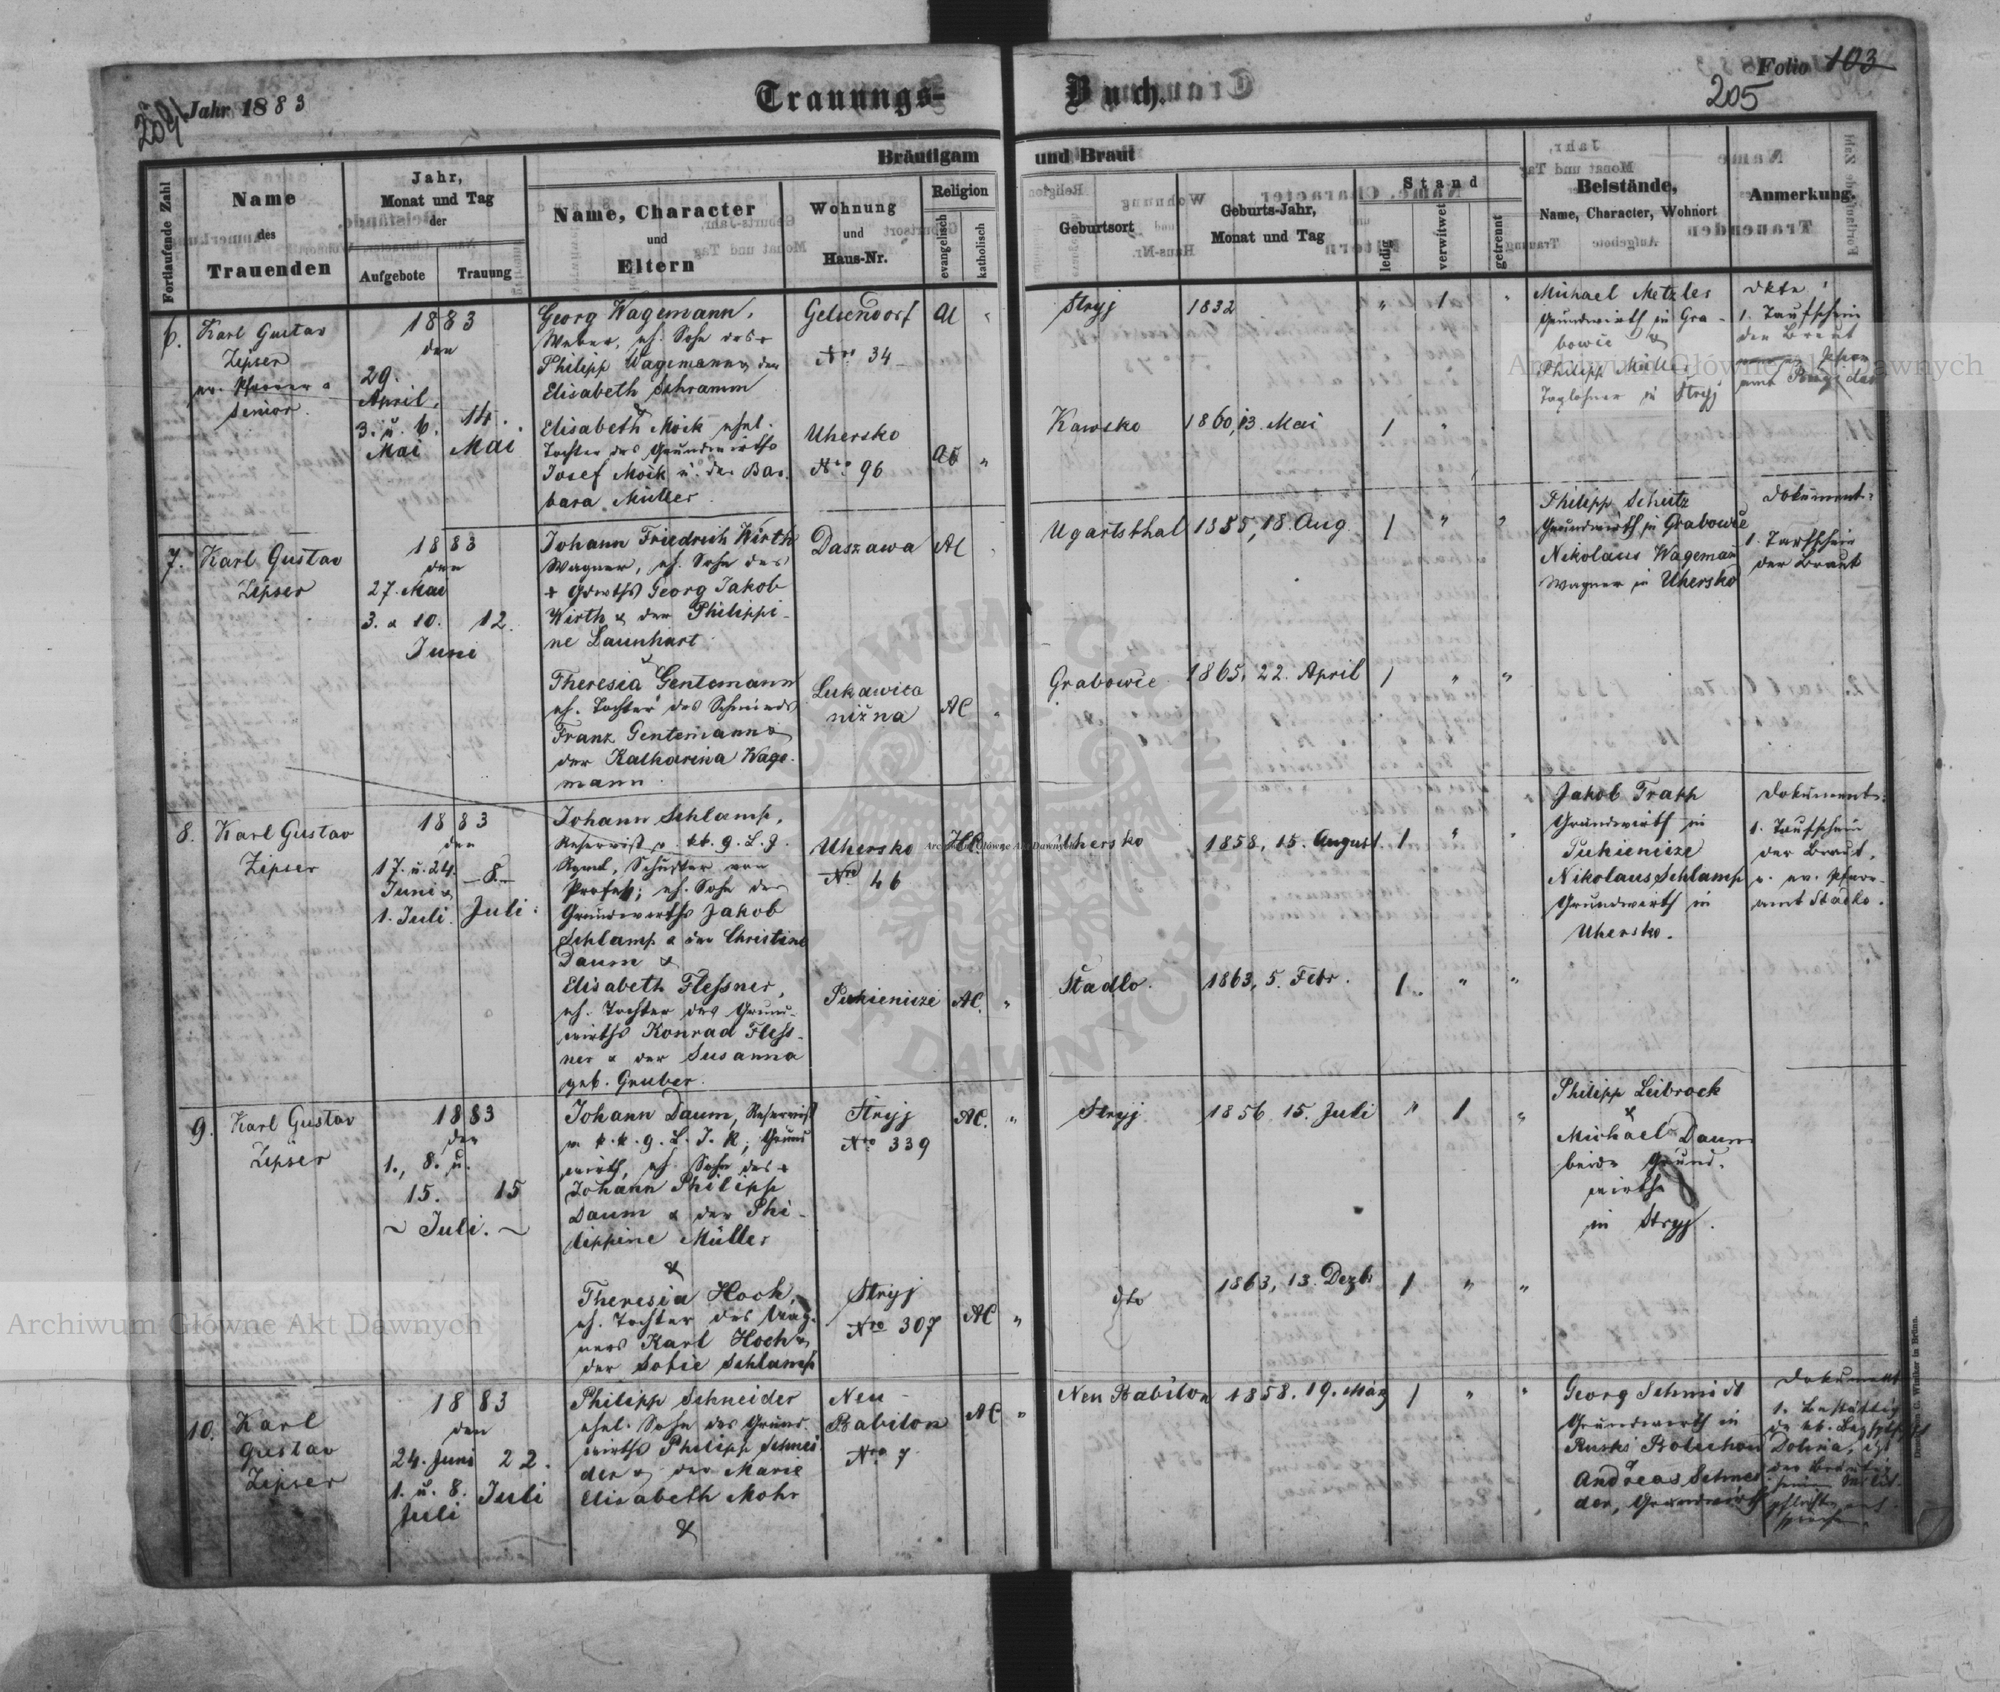 Jahr 1883
Trauungs-Buch.
Folio 103
205
Bräutigam und Braut
Fortlaufende Zahl
Name
des
Trauenden
Jahr,
Monat und Tag
der
Aufgebote
Trauung
Name, Character
und
Eltern
Wohnung
und
Haus-Nr.
Religion
evangelisch
katholisch
Geburtsort
Geburts-Jahr,
Monat und Tag
Stand
ledig
verwitwet
getrennt
Beistände,
Name, Character, Wohnort
Anmerkung.
6.
Karl Gustav
Zipser
ev. Pfarrer &
Senior.
1883
den
29.
April,
3. u. 6.
Mai
14.
Mai
Georg Wagemann,
Weber, eh. Sohn des +
Philipp Wagemann & der
Elisabeth Schramm
&
Elisabeth Möck ehel.
Tochter des Grundwirths
Josef Möck u. der Bar-
bara Müller.
Gelsendorf
Nro 34
Uhersko
Nro 96
AC
AC
Stryj
1832
Kawsko
1860, 13. Mai
Michael Metzler
Grundwirth in Gra-
bowce &
Philipp Müller
Taglöhner in Stryj
1. Taufschein
der Braut
7.
Karl Gustav
Zipser
1883
den
27. Mai
3. & 10.
Juni
12.
Johann Friedrich Wirth
Wagner, eh. Sohn des
+ Grwths Georg Jakob
Wirth & der Philippi-
ne Launhart
&
Theresia Gentemann
eh. Tochter des Schmieds
Franz Gentemann &
der Katharina Wage-
mann.
Daszawa
Lukawica
nižna
AC
AC
Ugartsthal
1855, 18. Aug.
Grabowce
1865, 22. April
Philipp Schütz
Grundwirth in Grabowce
Nikolaus Wagemañ
Wagner in Uhersko
Dokument:
1. Taufschein
der Braut
8.
Karl Gustav
Zipser
1883
den
17. u. 24.
Juni &
1. Juli.
8.
Juli.
Johann Schlamp,
Reservist v. kk. g. L. J.
Rgmt, Schuster von
Profess; eh. Sohn des
Grundwirths Jakob
Schlamp & der Christine
Daum &
Elisabeth Flessner,
eh. Tochter des Grund-
wirths Konrad Fless-
ner & der Susanna
geb. Gruber.
Uhersko
Nro 46
Pukienicze
AC.
Uhersko
1858, 15. August
Stadlo.
1863, 5. Febr.
Jakob Trapp
Grundwirth in
Pukienicze
Nikolaus Schlamp
Grundwirth in
Uhersko.
Dokument:
1. Taufschein
der Braut,
v. ev. Pfarr-
amt Stadlo.
9.
Karl Gustav
Zipser
1883
den
1., 8. u.
15.
Juli.
15
Johann Daum, Reservist
v. k. k. g. L. J. R, Grund
wirth, eh. Sohn des +
Johann Philipp
Daum & der Phi-
lippine Müller
&
Theresia Hoch,
eh. Tochter des Wag-
ners Karl Hoch &
der Sofie Schlamp
Stryj
Nro 339
Stryj
Nro 307
AC.
AC
Stryj
1856. 15. Juli
dto
1863, 13. Dezbr
Philipp Leibrock
&
Michael Daum
beide Grund-
wirthe
in Stryj.
10.
Karl
Gustav
Zipser
1883
den
24. Juni
1. u. 8.
Juli
22.
Juli
Philipp Schneider
ehel. Sohn des Grund-
wirths Philipp Schnei
der & der Marie
Elisabeth Mohr
&
Neu-
Babilon
Nro 7
AC
Neu Babilon
1858. 19. März
Georg Schmidt
Grundwirth in
Andreas Schnei
der, Grundwirth
Dokument
Archiwum Główne Akt Dawnych
Archiwum Główne Akt Dawnych
Archiwum Główne Akt Dawnych